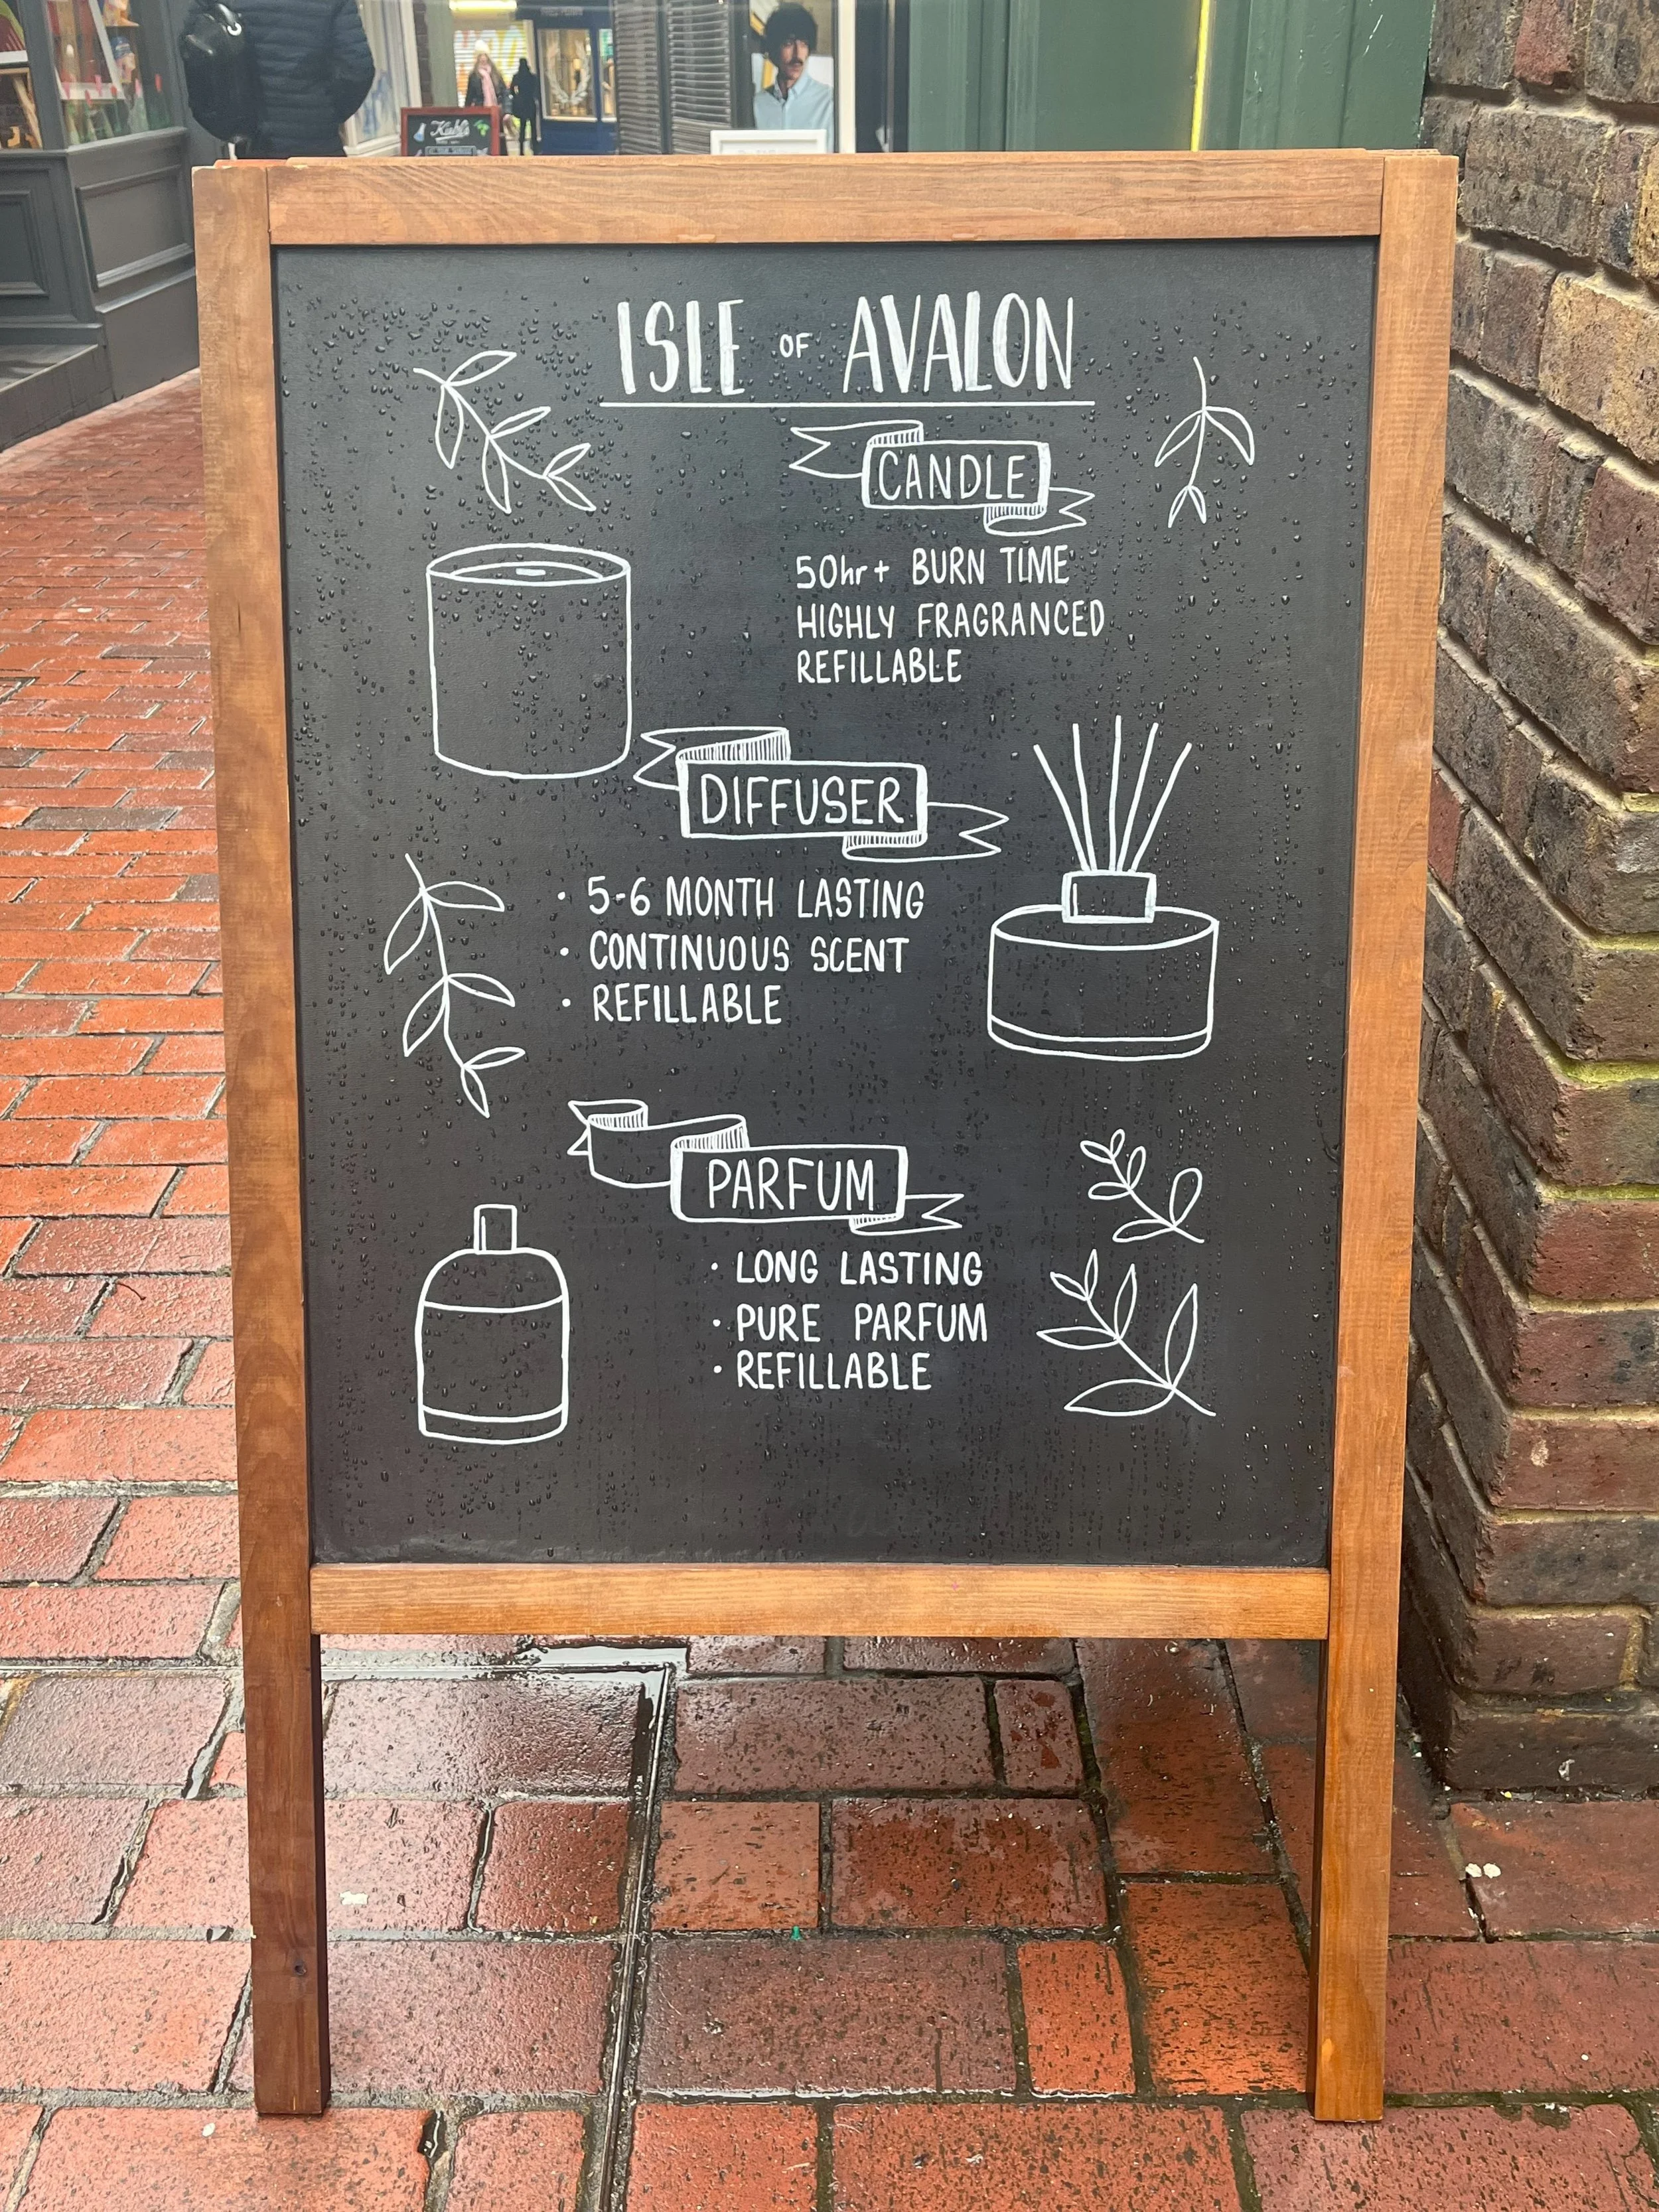 Kiehl's
ISLE OF AVALON
CANDLE
50hr+ BURN TIME
HIGHLY FRAGRANCED
REFILLABLE
DIFFUSER
· 5-6 MONTH LASTING
· CONTINUOUS SCENT
· REFILLABLE
PARFUM
· LONG LASTING
· PURE PARFUM
· REFILLABLE